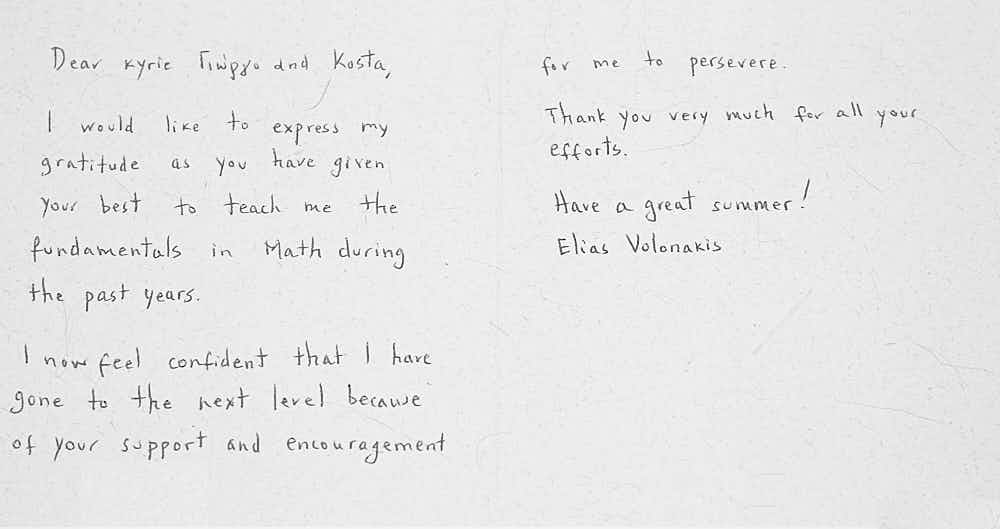 Dear κyrie Γιώργο and Kosta,
I would like to express my
gratitude as you have given
your best to teach me the
fundamentals in Math during
the past years.
I now feel confident that I have
gone to the next level because
of your support and encouragement
for me to persevere.
Thank you very much for all your
efforts.
Have a great summer!
Elias Volonakis